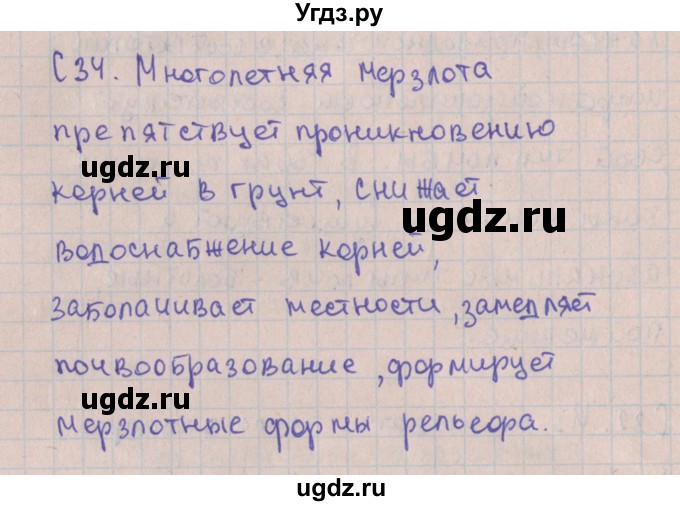 Угдз.ру
С 34. Многолетняя мерзлота
препятствует проникновению
ugdz.ru
корней в грунт, снижает
ugdz.ru
водоснабжение корней,
заболачивает местности, замедляет
ugdz.ru
почвообразование, формирует
ugdz.ru
мерзлотные формы рельефа.
ugdz.ru